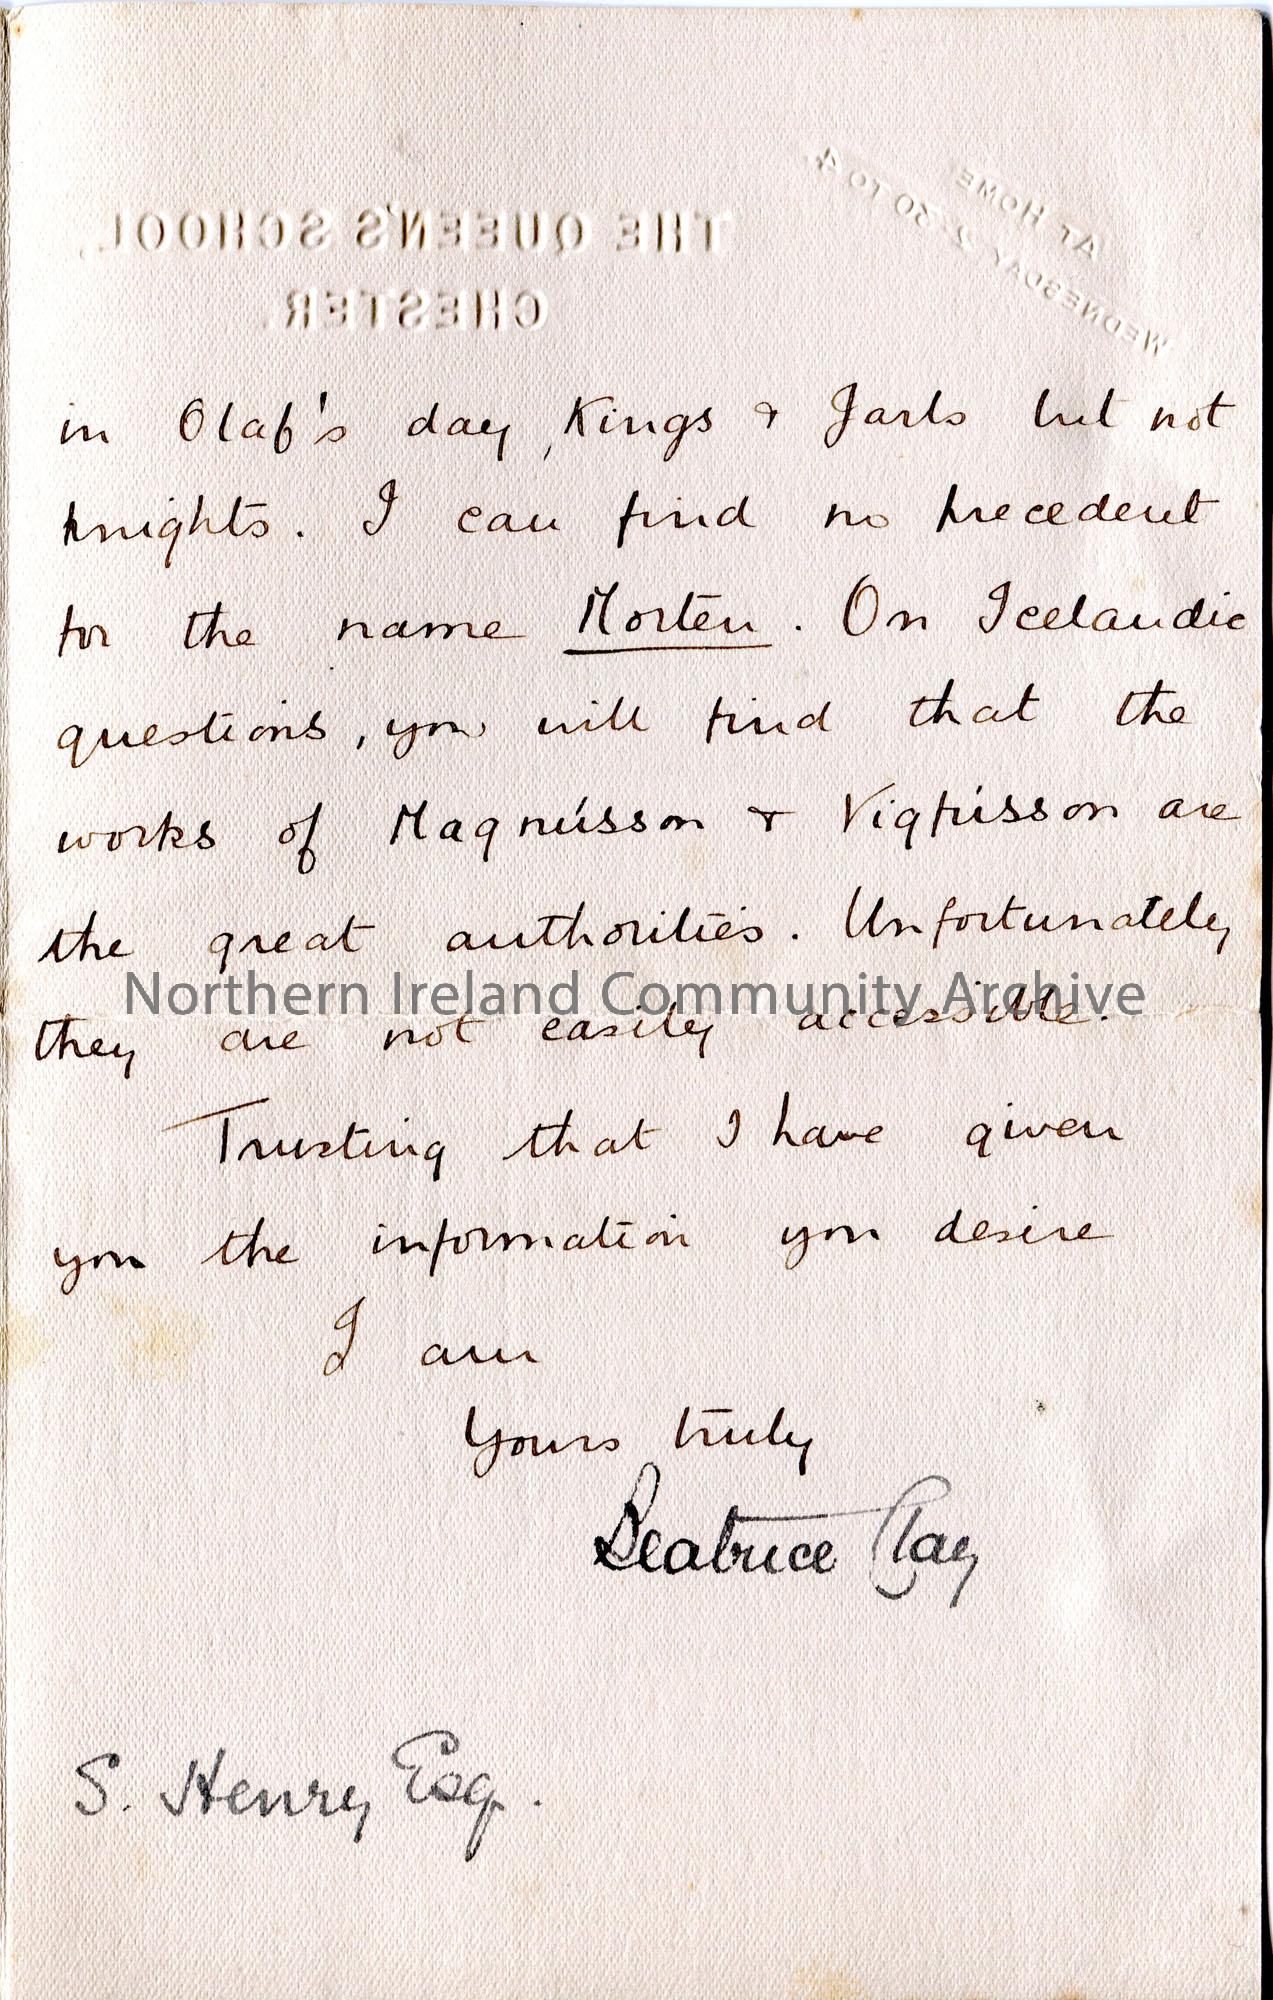 THE QUEEN'S SCHOOL,
CHESTER.
AT HOME
WEDNESDAY 2-30 TO 4.
in Olaf's day, Kings & Jarls but not
knights. I can find no precedent
for the name Morten. On Icelandic
questions, you will find that the
works of Magnússon & Vigfússon are
the great authorities. Unfortunately
Northern Ireland Community Archive
they are not easily accessible.
Trusting that I have given
you the information you desire
I am
Yours truly
Beatrice Clay
S. Henry Esq.